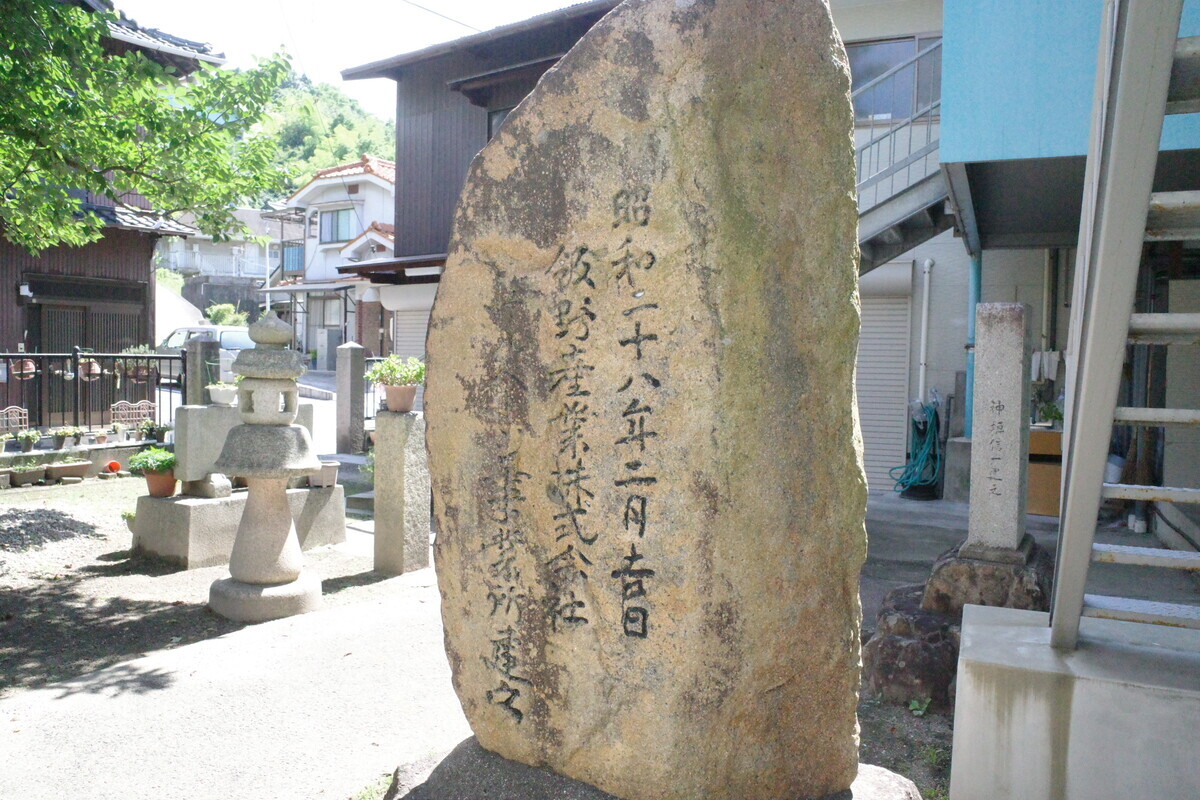 昭和二十八年二月吉日
飯野産業株式会社
業所建之
神垣信一建之